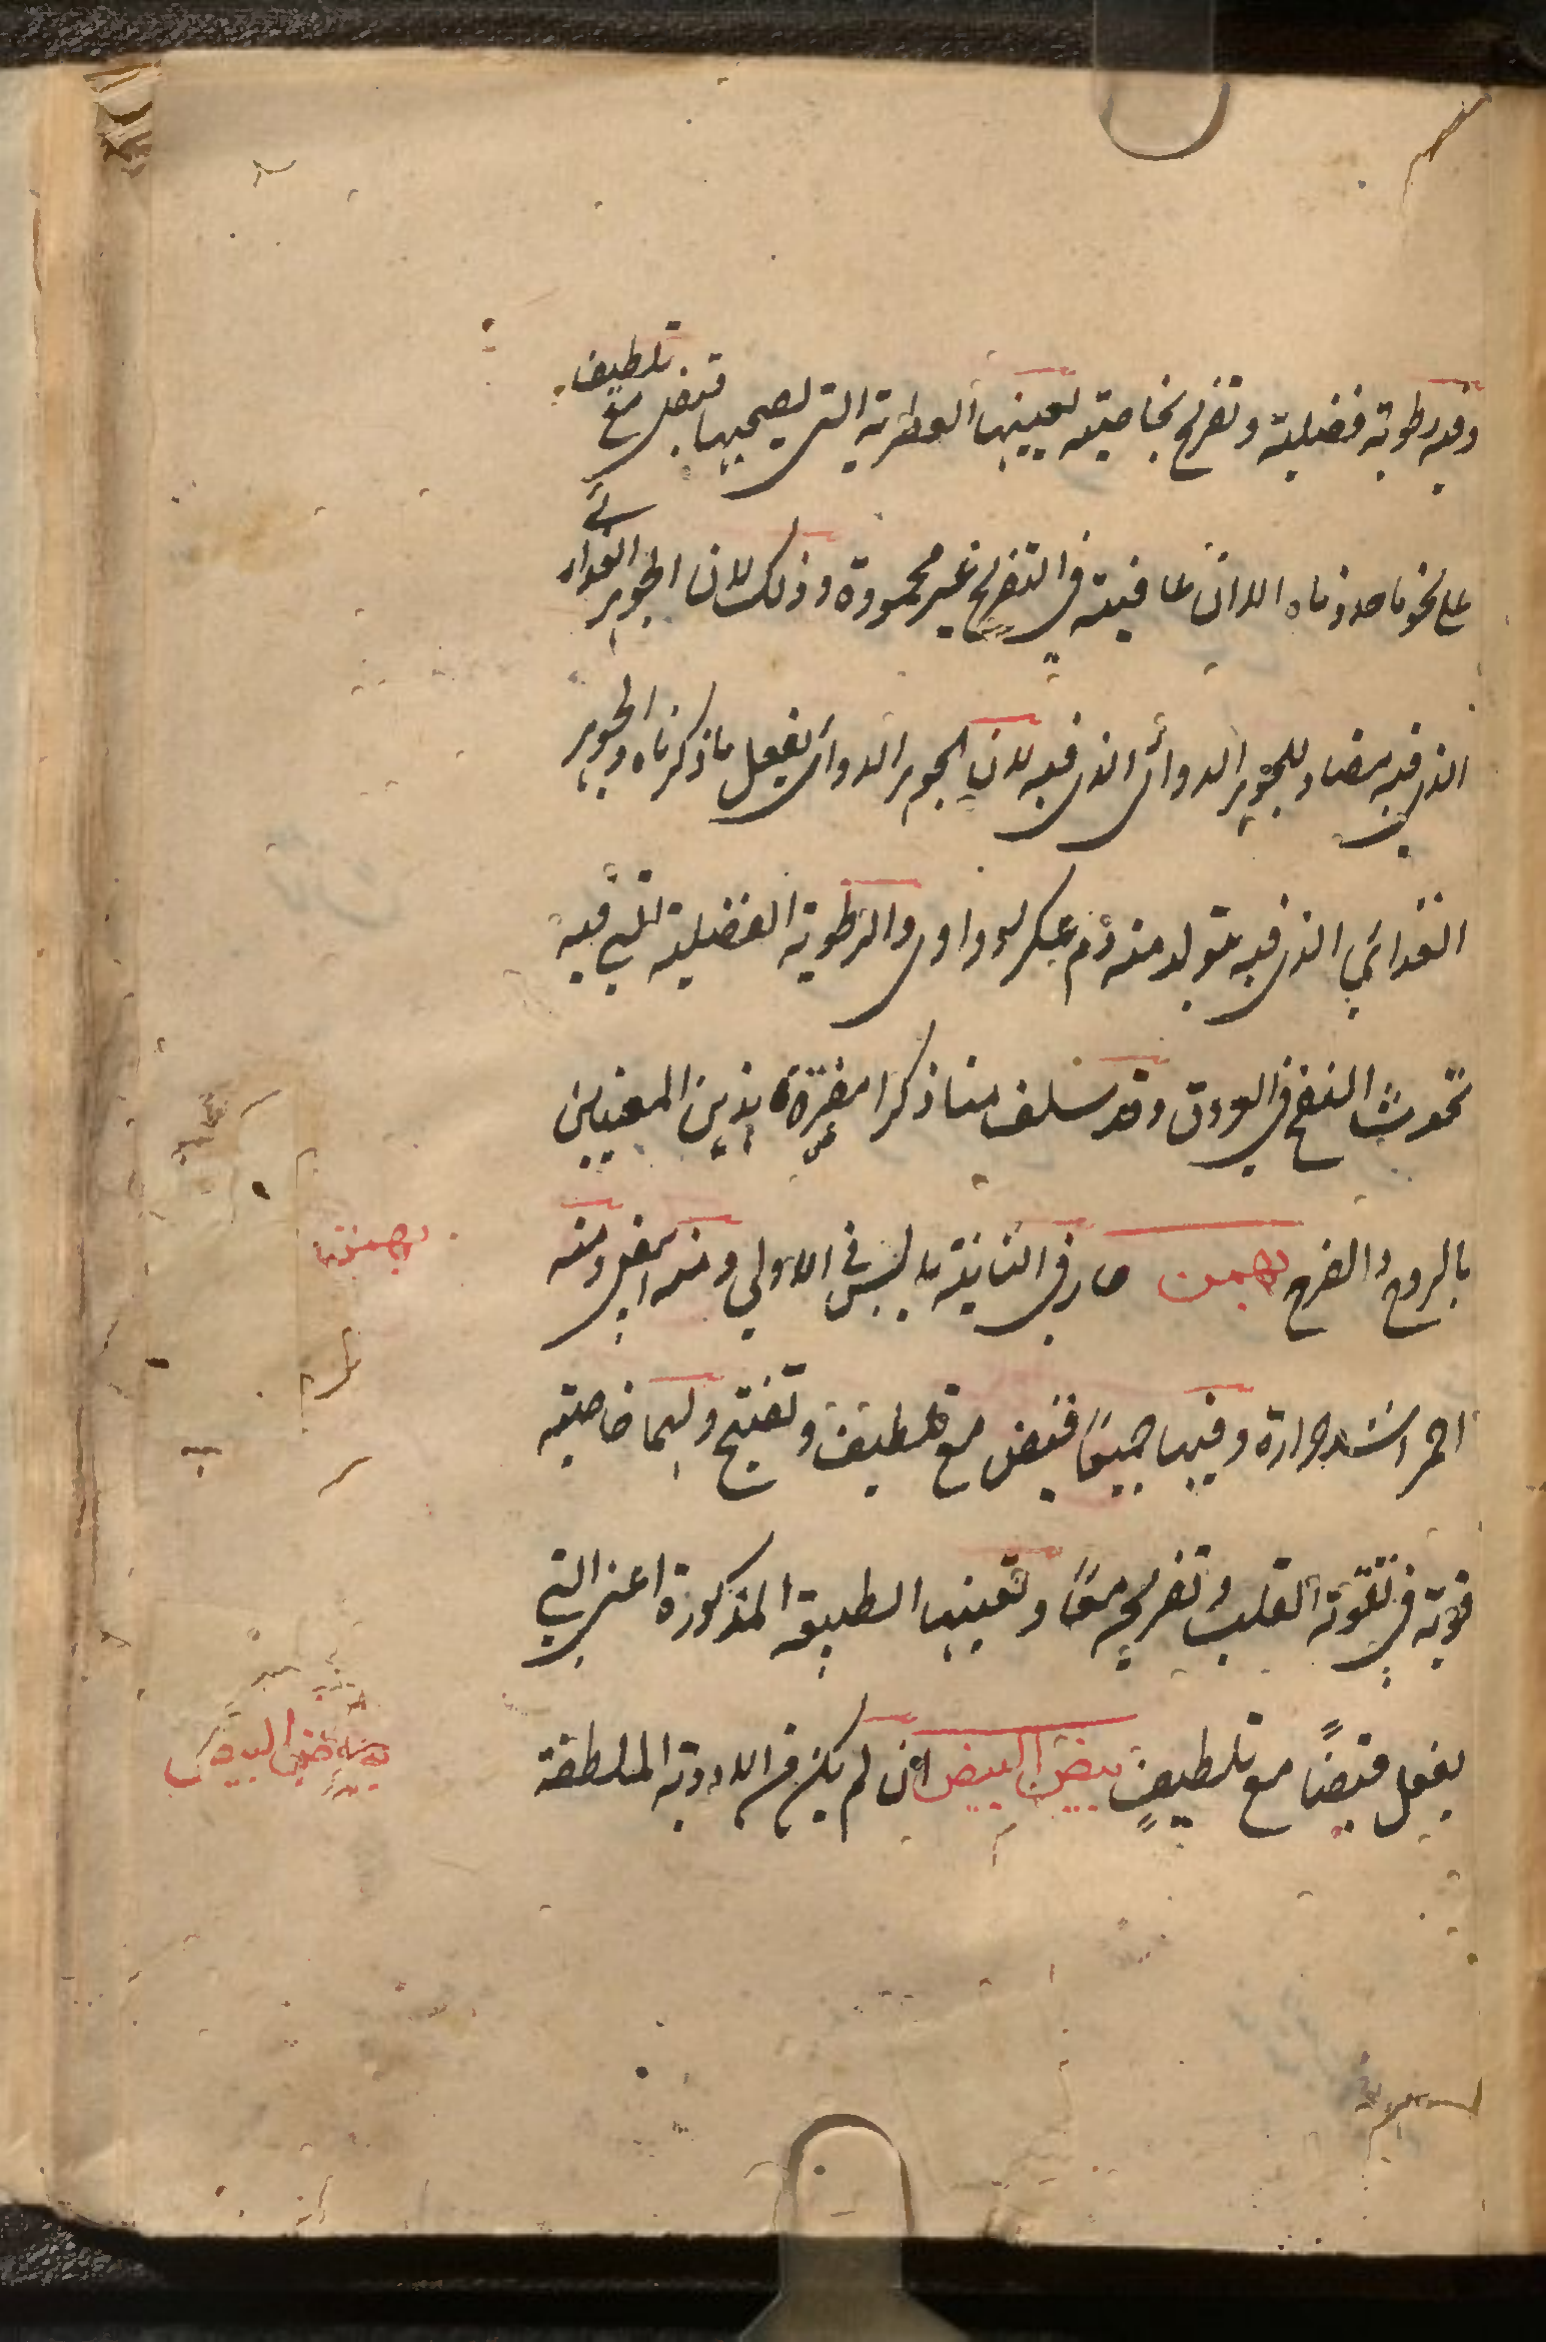 وفيه رطوبة فضلية وتفريح بخاصيته تعينها العطرية التى يصحبها قبض مع تلطيف
على نحو ما حددناه الا ان عاقبته فى التفريح غير محمودة وذلك لان الجوهر الغذائى
الذى فيه مضاد للجوهر الدوائى الذى فيه لان الجوهر الدوائى يفعل ما ذكرناه والجوهر
الغذائي الذى فيه يتولد منه دم عكر سوداوى والرطوبة الفضلية التي فيه
تحدث النفخ في العروق وقد سلف منا ذكر مضرّة هذين المعنيين
بالروح والفرح بهمن حار فى الثانية يابس في الاولي ومنه ابيض ومنه
احمر اشد حرارة وفيهما جميعًا قبض مع تلطيف وتفتيح ولهما خاصيته
قوية في تقوية القلب وتفريحه معًا وتعينها الطبيعة المذكورة اعنى التي
يفعل قبضًا مع تلطيفٍ بيض البيض ان لم يكن من الادوية الملطفة
بهمن